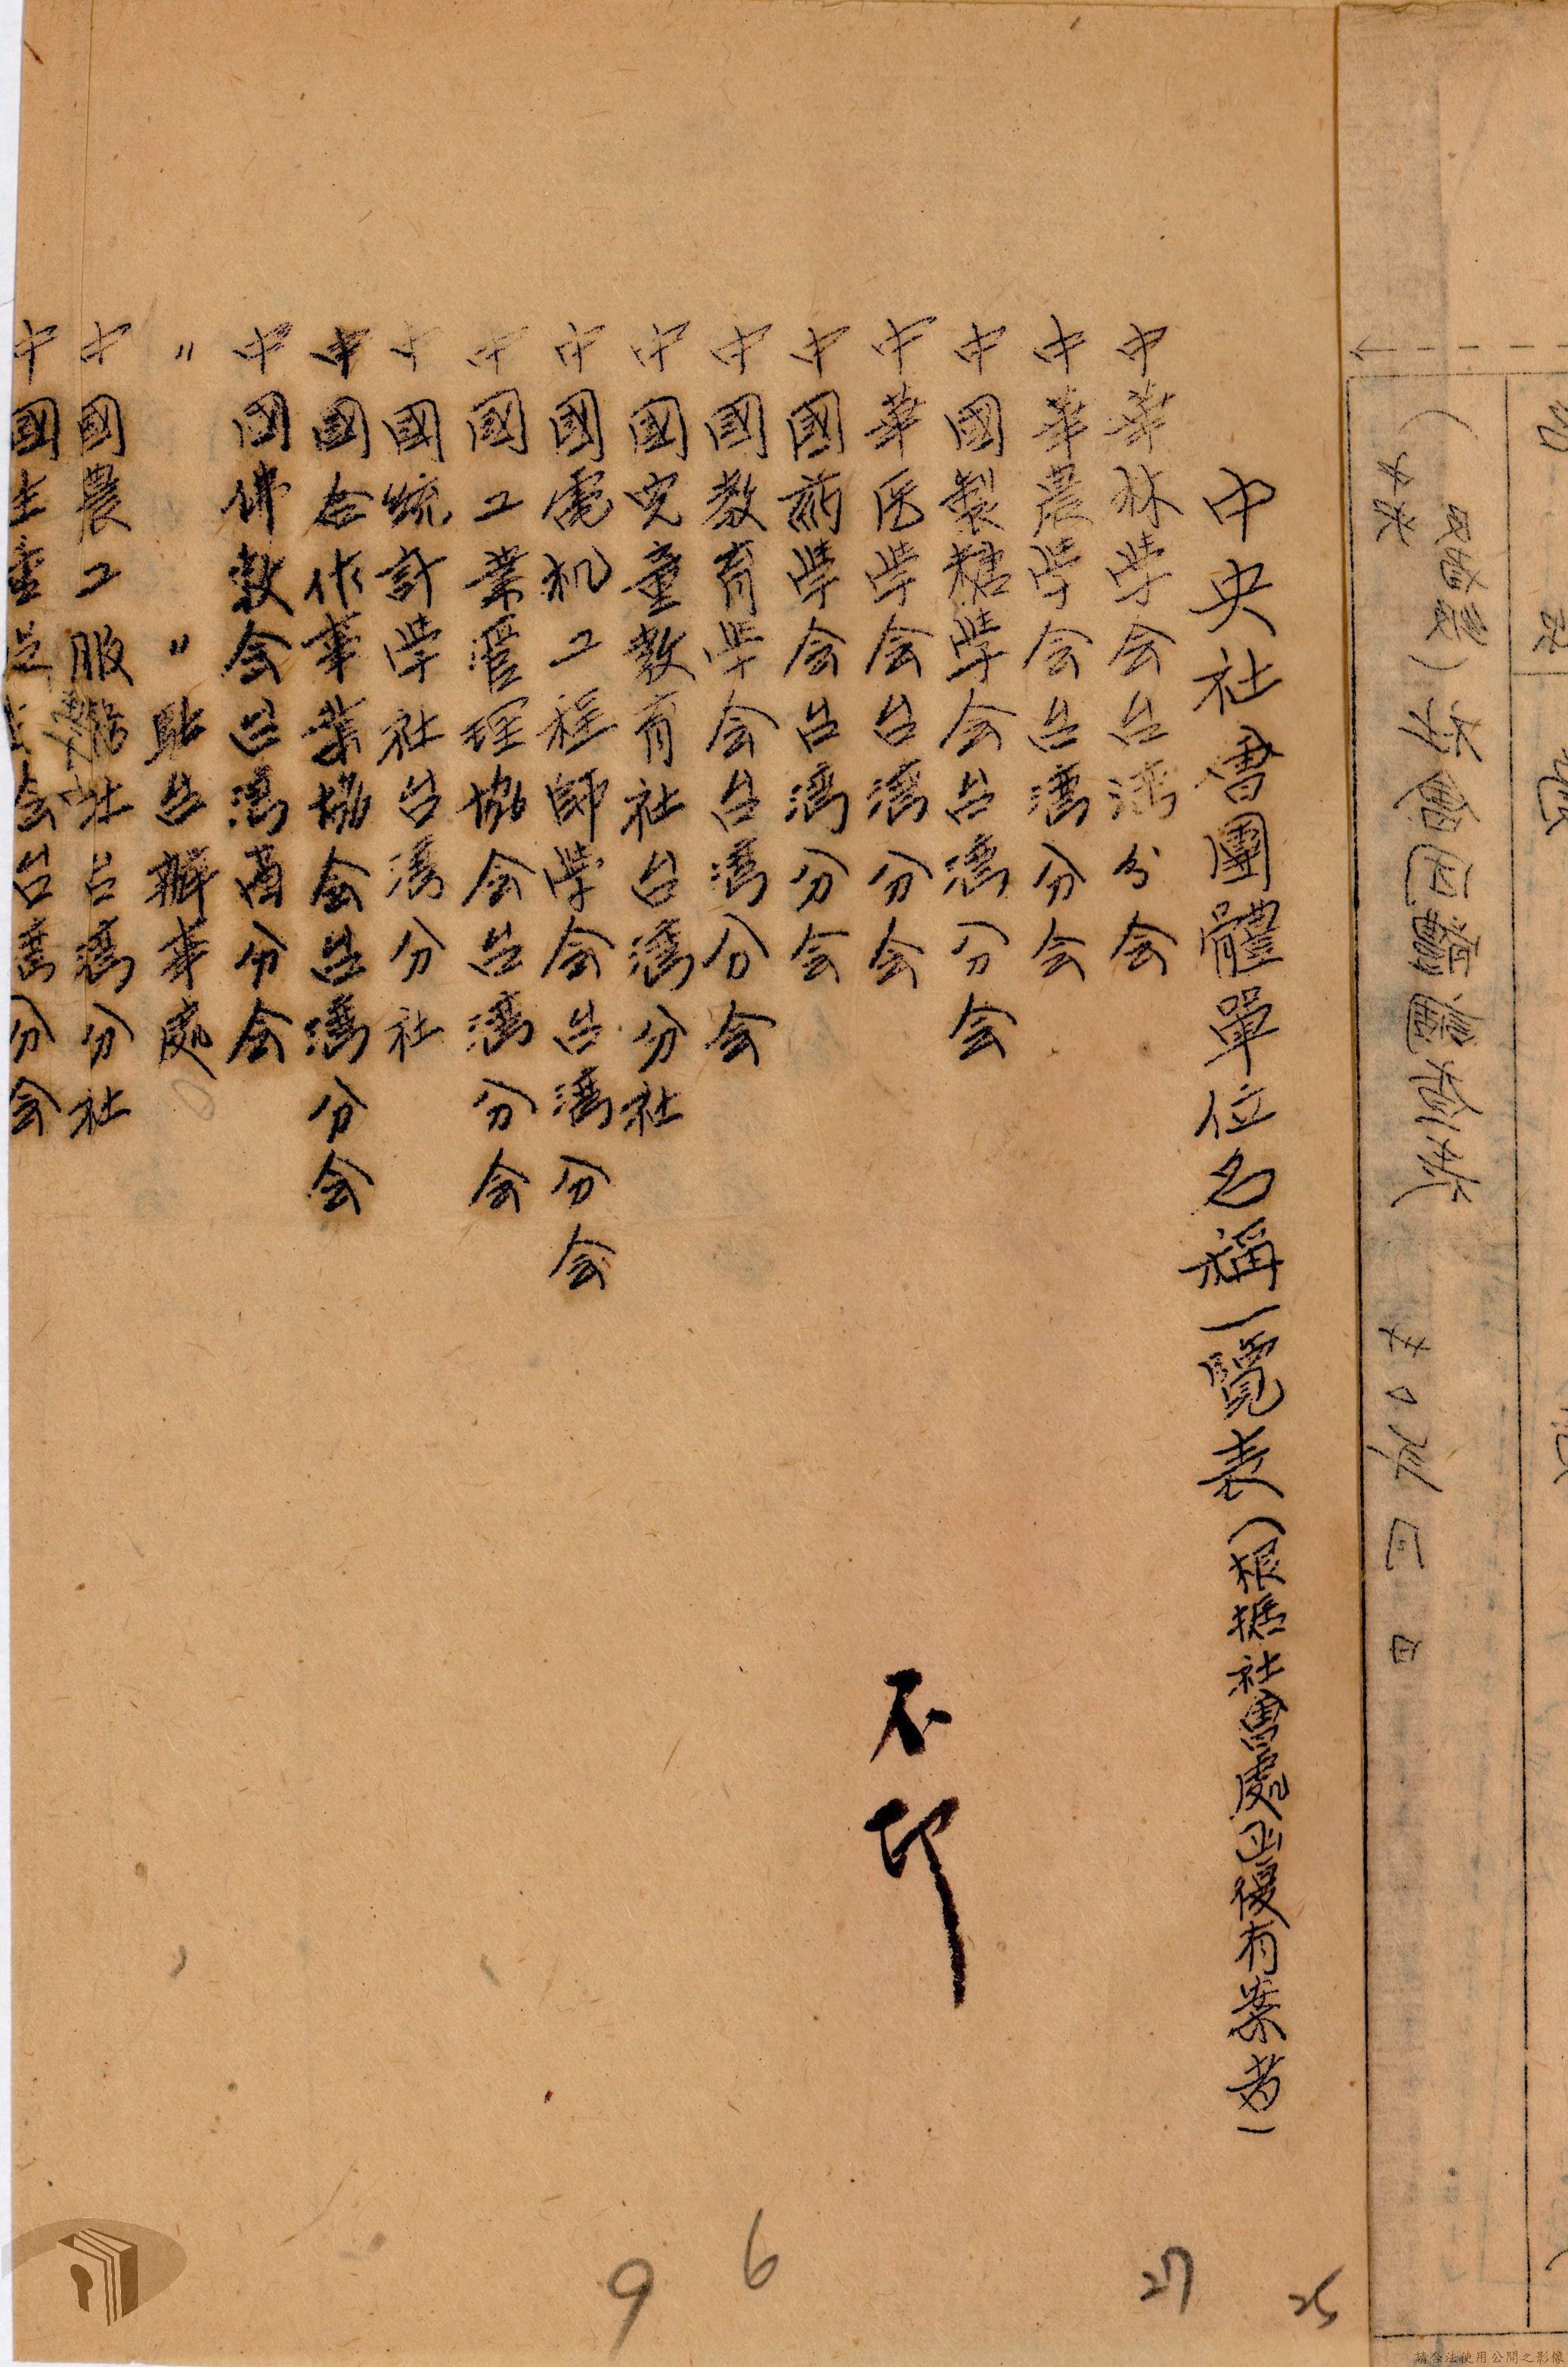 中央社會團體單位名稱一覽表(根据社會處函復有案者)
中華林学会台湾分会
中華農学会台湾分会
中國製糖学会台湾分会
中華医学会台湾分会
中國葯学会台湾分会
中國教育学会台湾分会
中國児童教育社台湾分社
中國電机工程師学会台湾分会
中國工業管理協会台湾分会
中國統計学社台湾分社
中國合作事業協会台湾分会
中國佛教会台湾省分会
〃 〃 駐台辦事處
中國農工服務社台湾分社
中國主重足会台湾分会
不印
9
6
27
25
請合法使用公開之影像